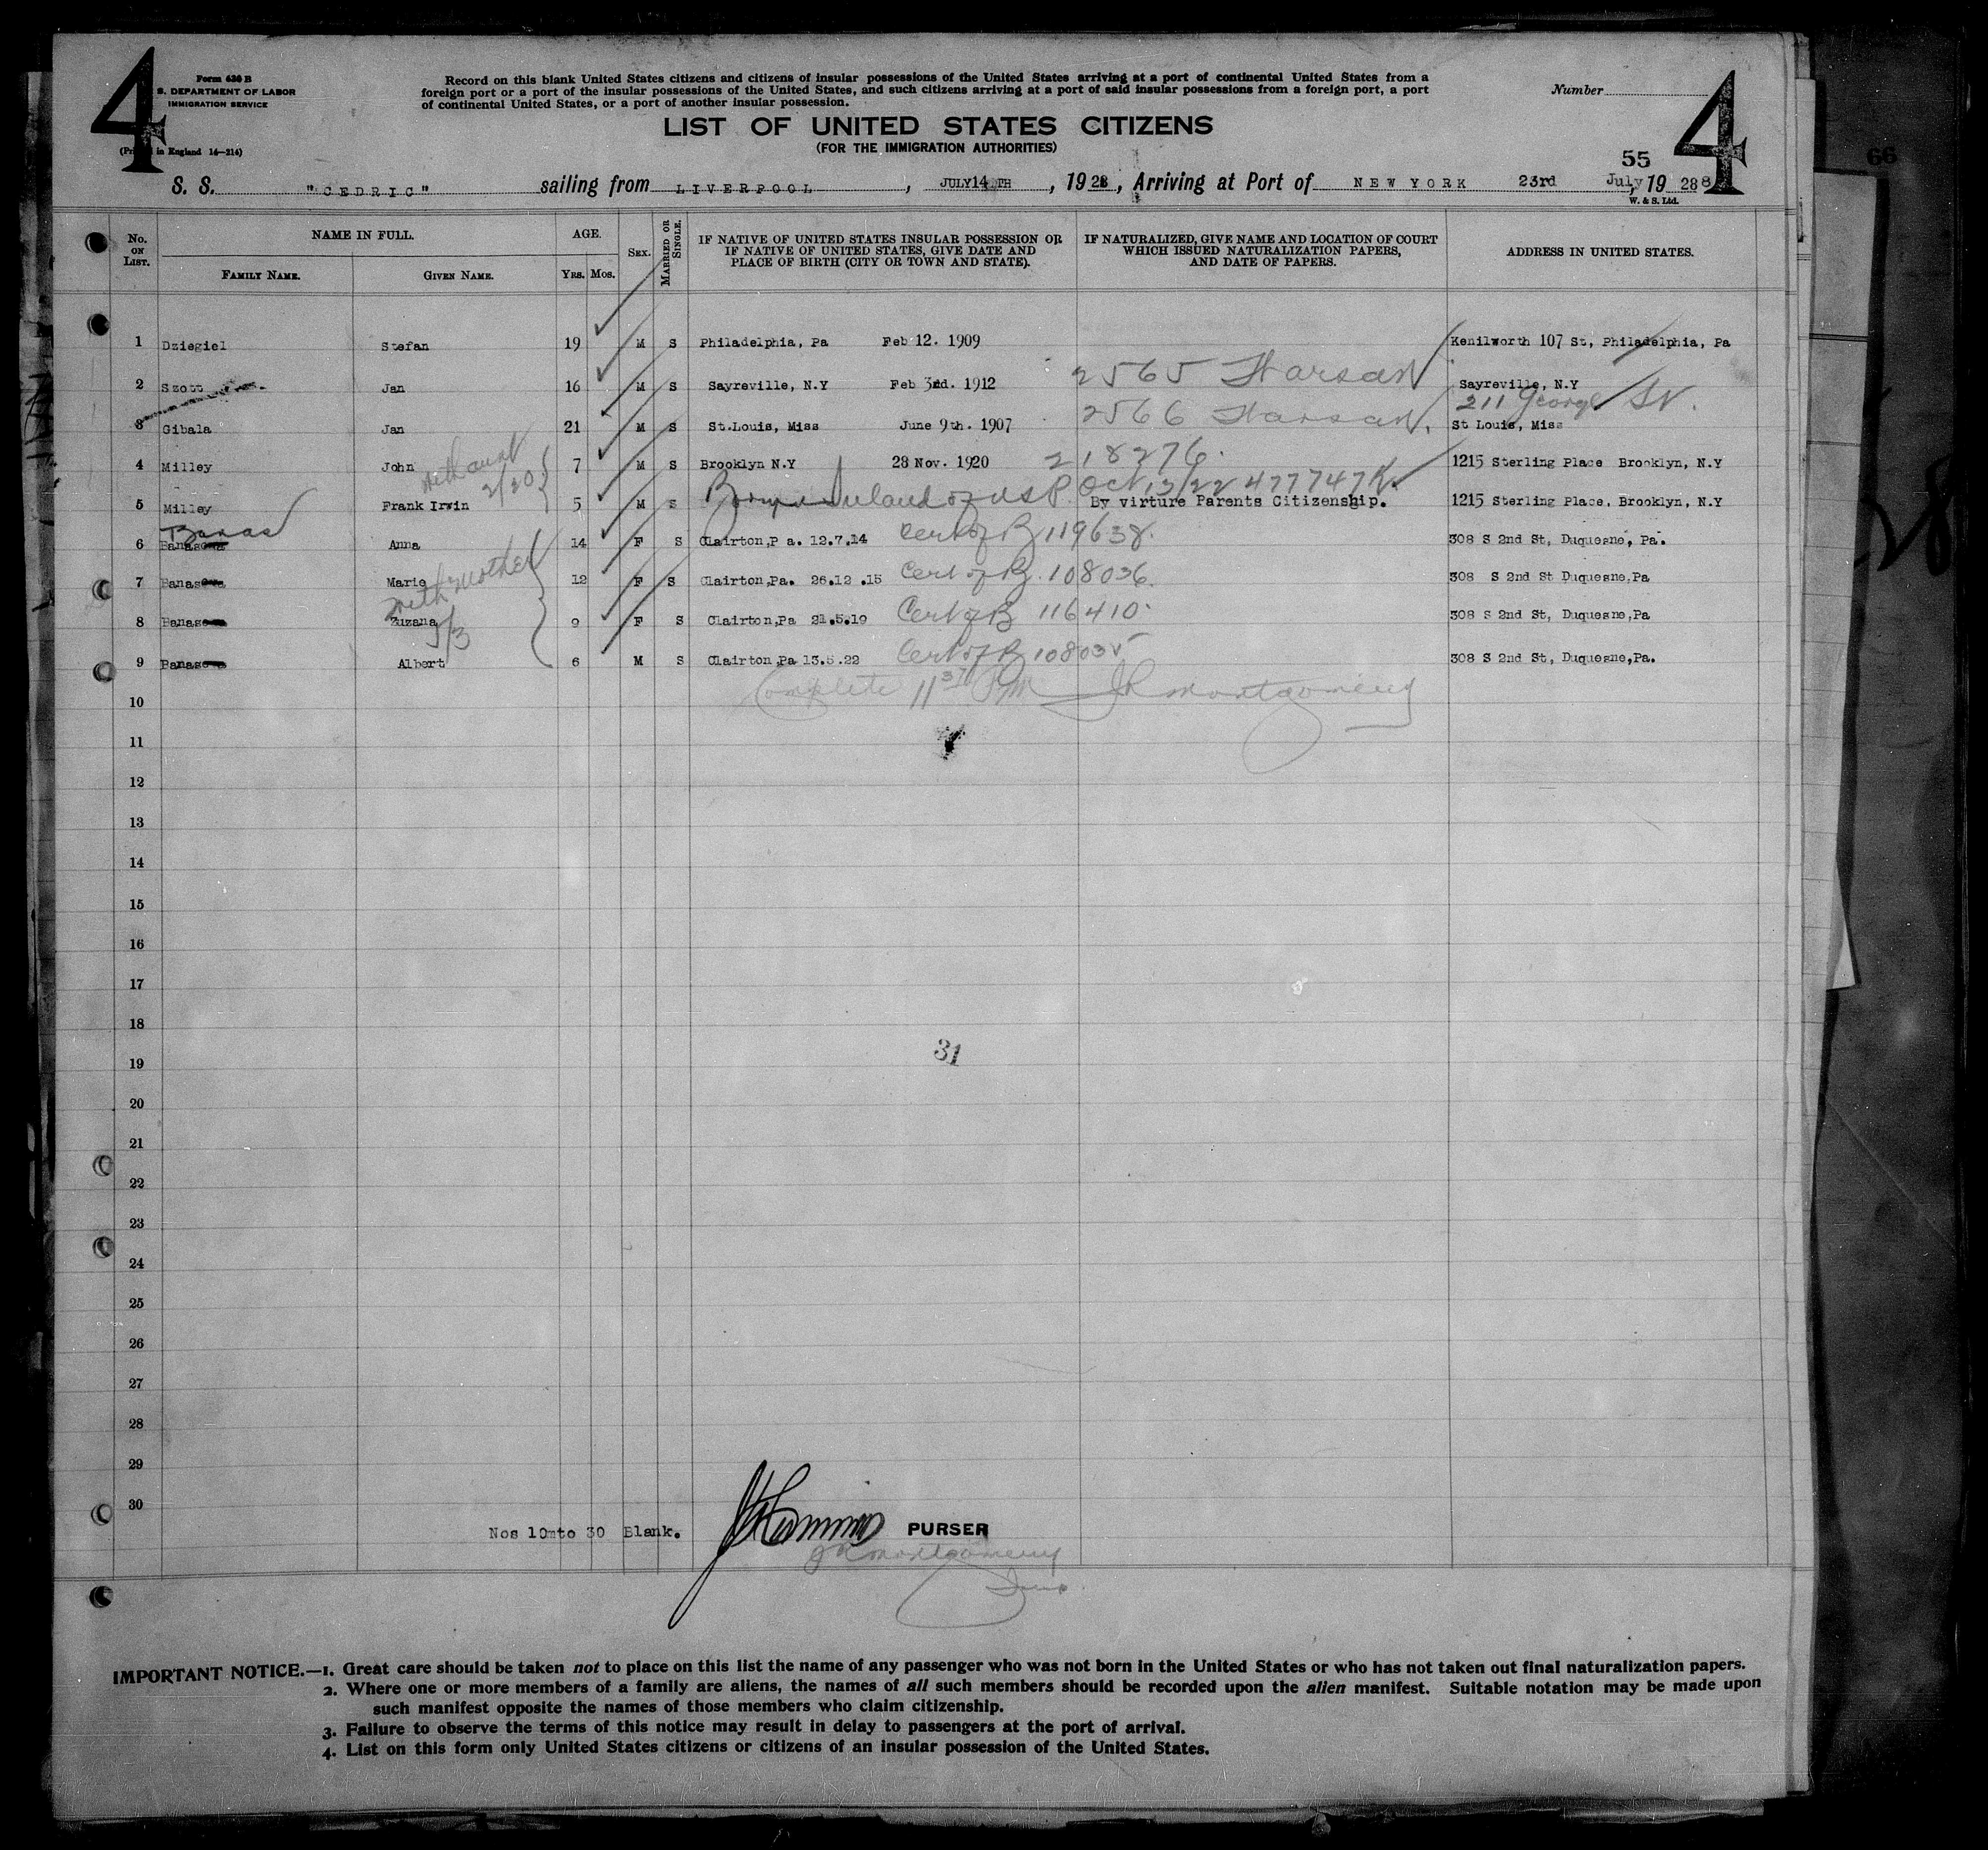 4
Form 630 B
S. DEPARTMENT OF LABOR
IMMIGRATION SERVICE
in England 14—214)
Record on this blank United States citizens and citizens of insular possessions of the United States arriving at a port of continental United States from a
foreign port or a port of the insular possessions of the United States, and such citizens arriving at a port of said insular possessions from a foreign port, a port
of continental United States, or a port of another insular possession.
Number
4
LIST OF UNITED STATES CITIZENS
(FOR THE IMMIGRATION AUTHORITIES)
55
66
S. S. "CEDRIC" sailing from LIVERPOOL, JULY 14 TH, 1928, Arriving at Port of NEW YORK 23rd July, 19 28 8
W. & S. Ltd.
No. ON LIST.
NAME IN FULL.
FAMILY NAME. GIVEN NAME.
AGE.
YRS. MOS.
SEX.
MARRIED OR SINGLE.
IF NATIVE OF UNITED STATES INSULAR POSSESSION OR
IF NATIVE OF UNITED STATES, GIVE DATE AND
PLACE OF BIRTH (CITY OR TOWN AND STATE).
IF NATURALIZED, GIVE NAME AND LOCATION OF COURT
WHICH ISSUED NATURALIZATION PAPERS,
AND DATE OF PAPERS.
ADDRESS IN UNITED STATES.
1 Dziegiel Stefan 19 M S Philadelphia, Pa Feb 12. 1909 Kenilworth 107 St, Philadelphia, Pa
2 Szott Jan 16 M S Sayreville, N.Y Feb 3rd. 1912 2565 Warsaw Sayreville, N.Y
211 George St.
3 Gibala Jan 21 M S St.Louis, Miss June 9th. 1907 2566 Warsaw. St Louis, Miss
with aunt
2/20
4 Milley John 7 M S Brooklyn N.Y 28 Nov. 1920 218276. 1215 Sterling Place Brooklyn, N.Y
Oct 13/22 477747
5 Milley Frank Irwin 5 M S By virture Parents Citizenship. 1215 Sterling Place, Brooklyn, N.Y
Banas
6 Banas Anna 14 F S Clairton,P a. 12.7.14 Cert of B 119638. 308 S 2nd St, Duquesne, Pa.
7 Banas Marie 12 F S Clairton,Pa. 26.12.15 Cert of B. 108036. 308 S 2nd St Duquesne,Pa
with mother
5/3
8 Banas Zuzana 9 F S Clairton,Pa 21.5.19 Cert of B 116410. 308 S 2nd St, Duquesne,Pa
9 Banas Albert 6 M S Clairton,Pa 13.5.22 Cert of B 108035 308 S 2nd St, Duquesne,Pa.
Complete 11 37 PM JR Montgomery
10
11
12
13
14
15
16
17
18
31
19
20
21
22
23
24
25
26
27
28
29
30
Nos 10mto 30 Blank. PURSER
JR Montgomery
Insp.
IMPORTANT NOTICE.—1. Great care should be taken not to place on this list the name of any passenger who was not born in the United States or who has not taken out final naturalization papers.
2. Where one or more members of a family are aliens, the names of all such members should be recorded upon the alien manifest. Suitable notation may be made upon
such manifest opposite the names of those members who claim citizenship.
3. Failure to observe the terms of this notice may result in delay to passengers at the port of arrival.
4. List on this form only United States citizens or citizens of an insular possession of the United States.